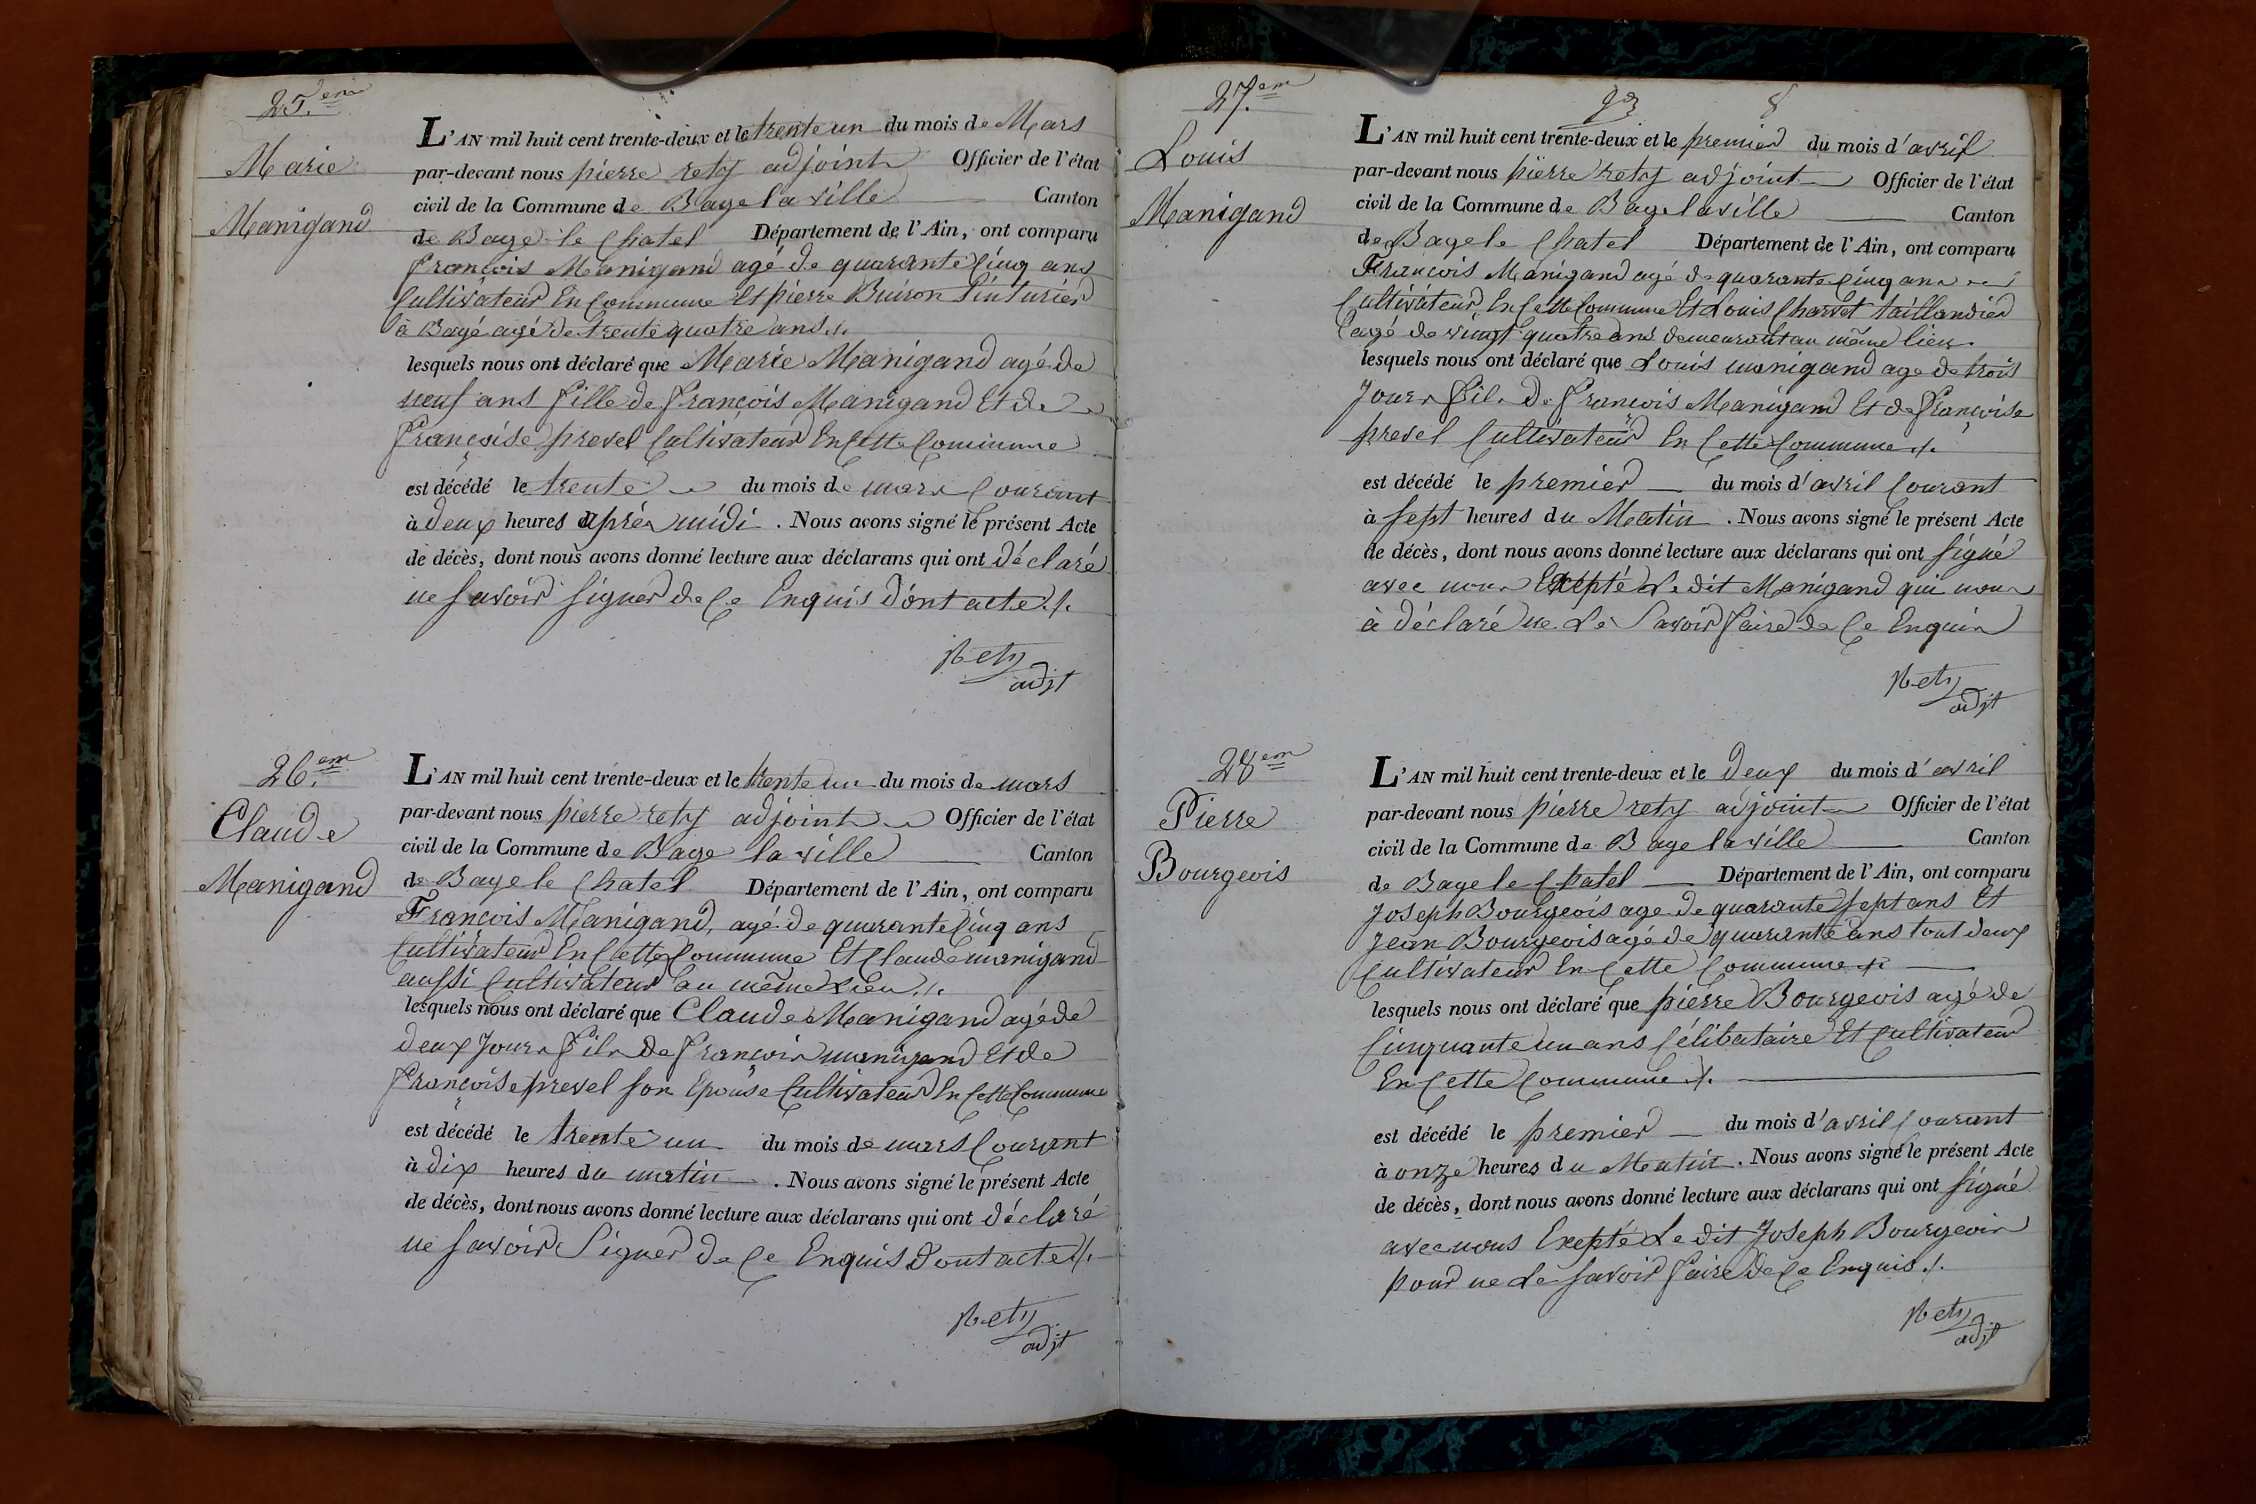 25.em
Marie
Manigand
L'AN mil huit cent trente-deux et le trente un du mois de Mars
par-devant nous pierre rety adjoint Officier de l'état
civil de la Commune de Bage la ville Canton
de Bage le Chatel Département de l'Ain, ont comparu
François Manigand agé de quarante Cinq ans
Cultivateur En Commune Et pierre Buiron Tinturier
à Bagé agé de trente quatre ans ./.
lesquels nous ont déclaré que Marie Manigand agé de
neuf ans fille de françois Manigand Et de
françoise prevel Cultivateur En Cette Commune
est décédé le trente du mois de mars Courant
à deux heures après midi . Nous avons signé le présent Acte
de décès, dont nous avons donné lecture aux déclarans qui ont déclaré
ne savoir signer de Ce Enquis dont acte ./.
Rety
adjt
26.em
Claude
Manigand
L'AN mil huit cent trente-deux et le trente un du mois de mars
par-devant nous pierre rety adjoint Officier de l'état
civil de la Commune de Bage la ville Canton
de Bage le Chatel Département de l'Ain, ont comparu
François Manigand, agé de quarante Cinq ans
Cultivateur En Cette Commune Et Claude manigand
aussi Cultivateur au même Lieu ./.
lesquels nous ont déclaré que Claude Manigand agé de
deux Jours fils de françois manigand Et de
françoise prevel son Epouse Cultivateur En Cette Commune
est décédé le trente un du mois de mars Courant
à dix heures du matin . Nous avons signé le présent Acte
de décès, dont nous avons donné lecture aux déclarans qui ont déclaré
ne savoir Signer de Ce Enquis dont acte ./.
Rety
adjt
8
27.em
Louis
Manigand
L'AN mil huit cent trente-deux et le premier du mois d'avril
par-devant nous pierre rety adjoint Officier de l'état
civil de la Commune de Bage la ville Canton
de Bage le Chatel Département de l'Ain, ont comparu
François Manigand agé de quarante Cinq ans
Cultivateur En Cette Commune Et Louis Charvet taillandier
agé de vingt quatre ans demeurant au même lieu.
lesquels nous ont déclaré que Louis manigand age de trois
Jours fils de françois Manigand Et de françoise
prevel Cultivateur En Cette Commune ./.
est décédé le premier du mois d'avril Courant
à sept heures du Matin . Nous avons signé le présent Acte
de décès, dont nous avons donné lecture aux déclarans qui ont signé
avec nous Exepté Le dit Manigand qui nous
à déclaré ne Le Savoir faire de Ce Enquis
Rety
adjt
28em
Pierre
Bourgeois
L'AN mil huit cent trente-deux et le deux du mois d'avril
par-devant nous pierre rety adjoint Officier de l'état
civil de la Commune de Bage la ville Canton
de Bage le Chatel Département de l'Ain, ont comparu
Joseph Bourgeois age de quarante sept ans Et
Jean Bourgeois agé de quarante ans tout deux
Cultivateur En Cette Commune ./.
lesquels nous ont déclaré que pierre Bourgeois agé de
Cinquante un ans Célibataire Et Cultivateur
En Cette Commune ./.
est décédé le premier du mois d'avril Courant
à onze heures du Matin . Nous avons signé le présent Acte
de décès, dont nous avons donné lecture aux déclarans qui ont signé
avec nous Exepté Le dit Joseph Bourgeois
pour ne Le savoir faire de Ce Enquis ./.
Rety
adjt